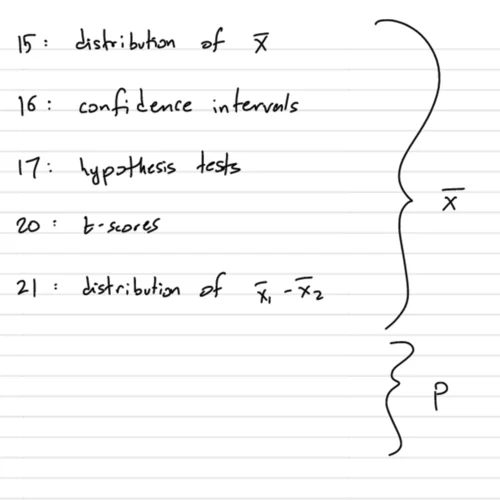 15: distribution of x̄
16: confidence intervals
17: hypothesis tests
20: t-scores
x̄
21: distribution of x̄₁ - x̄₂
P